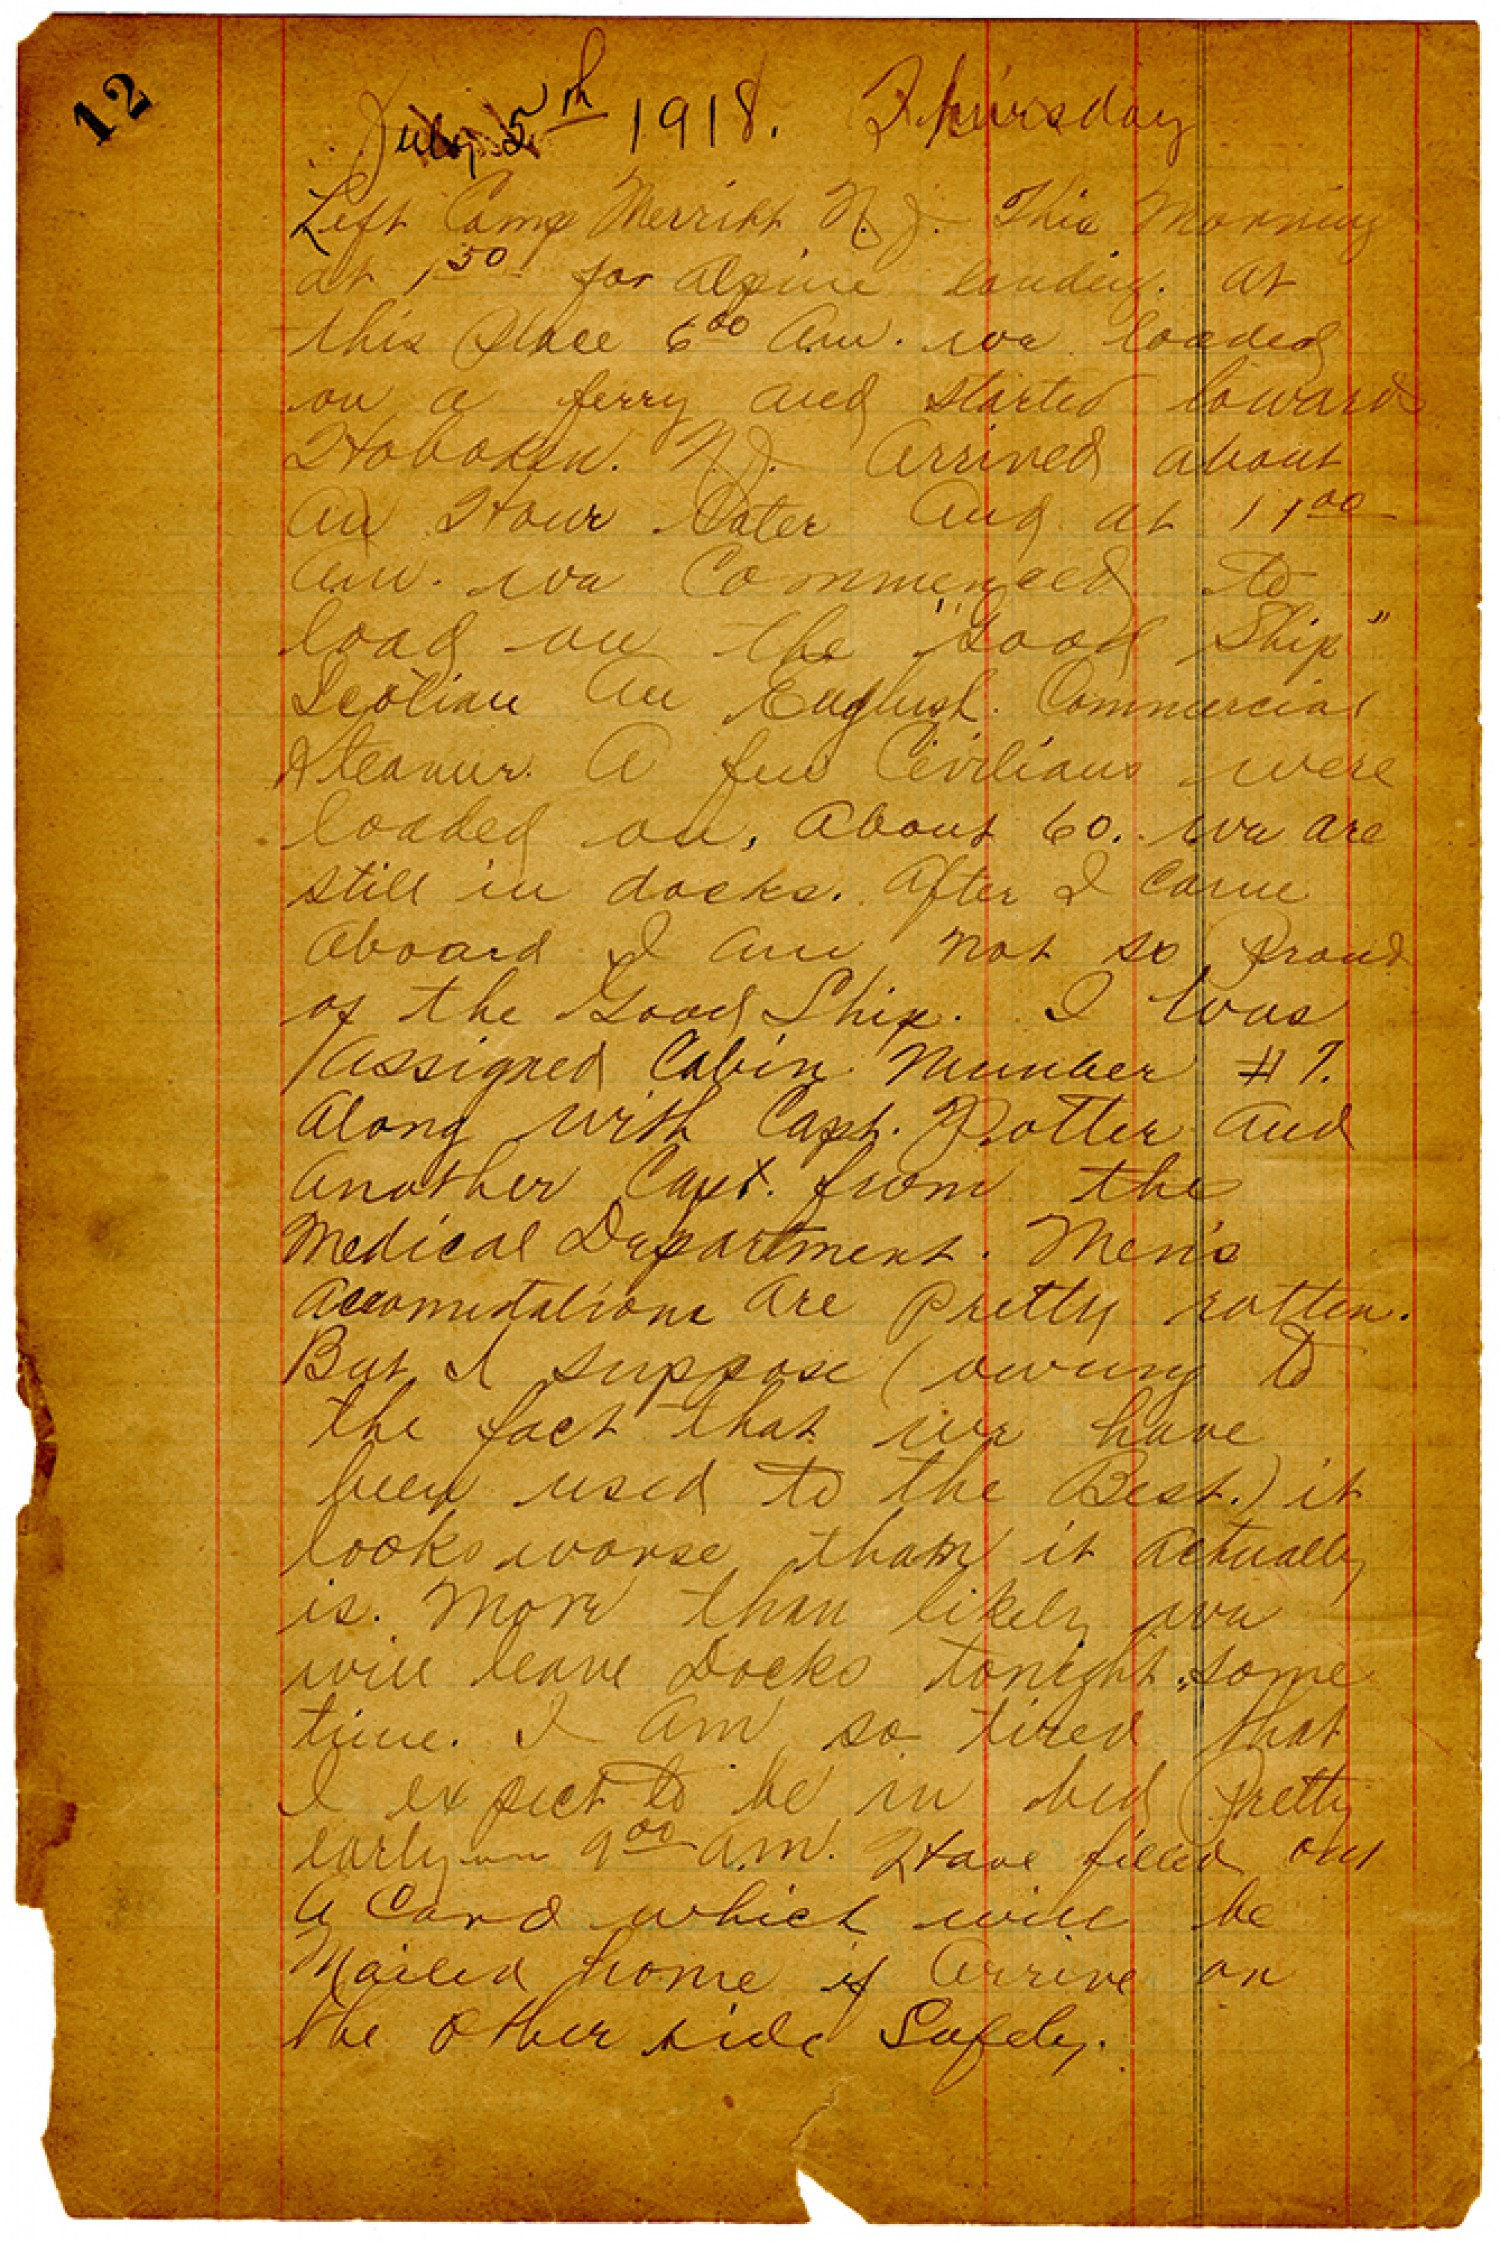 12
July 5th 1918. Thursday
Left Camp Merritt N.J. This Morning
at 1 50 for Alpine landing. At
this place 6 00 Am. we loaded
on a ferry and started toward
Hoboken. N.J. Arrived about
an Hour Later And at 11 00
am. we Commenced to
load on the "Good Ship"
Scotian An English Commercial
Steamer. A few Civilians were
loaded on, About 60. we are
still in docks. After I came
Aboard I am not so proud
of the Good Ship. I was
Assigned Cabin Number # 7.
Along with Capt. Potter and
Another Capt. from the
Medical Department. Men's
are pretty rotten.
But I suppose (owing to
the fact that we have
been used to the Best.) it
looks worse than it actually
is. More than likely we
will leave Docks tonight some
time. I Am so tired that
I expect to be in bed Pretty
early 9 00 a.m. Have filled out
A Card which will be
Mailed home if Arrive on
the other side Safely.